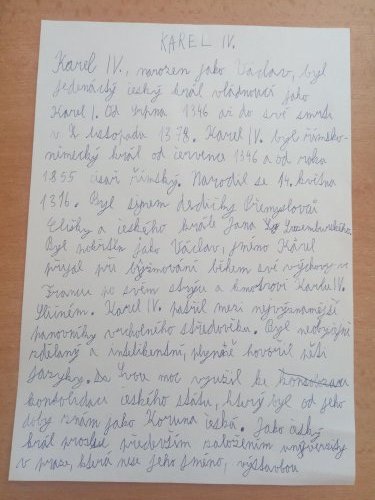 KAREL IV.
Karel IV., narozen jako Václav, byl
jedenáctý český král vládnoucí jako
Karel I. Od srpna 1346 až do své smrti
v listopadu 1378. Karel IV. byl římsko-
německý král od července 1346 a od roku
1355 císař římský. Narodil se 14. května
1316. Byl synem dědičky Přemyslovců
Elišky a českého krále Jana Lucemburského.
Byl pokřtěn jako Václav, jméno Karel
přijal při biřmování během své výchovy v
Francii po svém strýci a kmotrovi Karlu IV.
Sličném. Karel IV. patřil mezi nejvýznamnější
panovníky vrcholného středověku. Byl neobyčejně
vzdělaný a inteligentní, plynně hovořil pěti
jazyky. Svou moc využil ke
konsolidaci českého státu, který byl od jeho
doby znám jako Koruna česká. Jako český
král proslul především založením univerzity
v praze, která nese jeho jméno, výstavbou